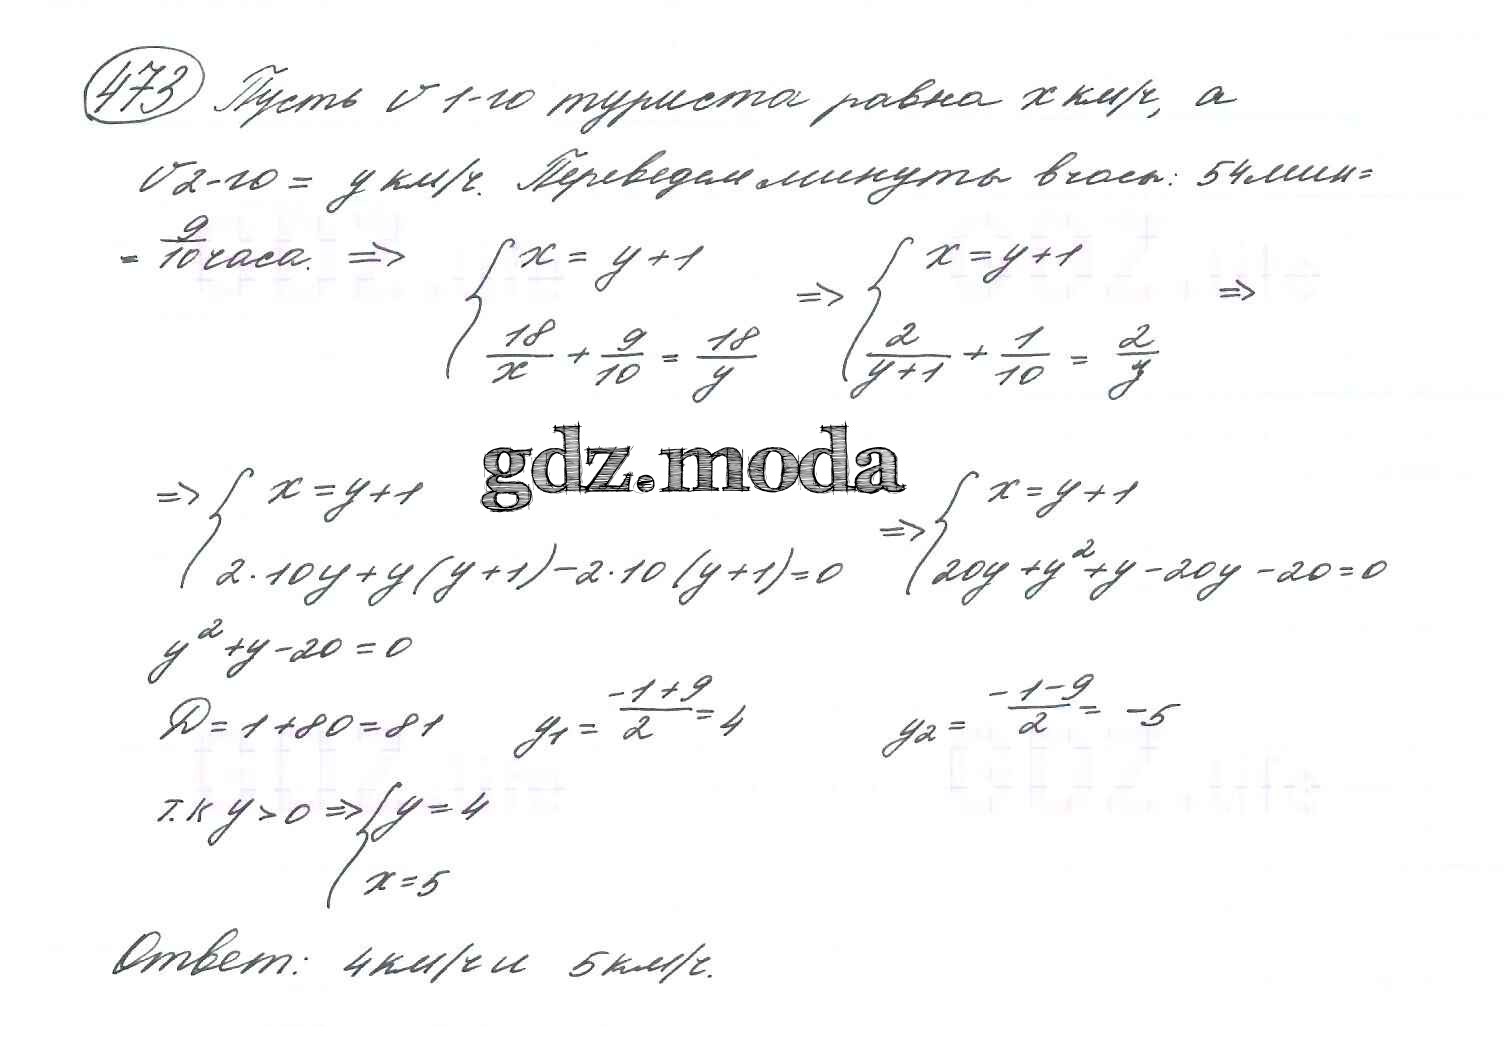 473 Пусть v 1-го туриста равна x км/ч, а
v 2-го = y км/ч. Переведем минуты в часы: 54 мин =
= 9/10 часа. => { x = y+1 => { x = y+1 =>
18/x + 9/10 = 18/y 2/(y+1) + 1/10 = 2/y
gdz.moda
=> { x = y+1 => { x = y+1
2·10y + y(y+1) - 2·10(y+1) = 0 20y + y² + y - 20y - 20 = 0
y² + y - 20 = 0
D = 1 + 80 = 81 y₁ = (-1+9)/2 = 4 y₂ = (-1-9)/2 = -5
т.к y > 0 => { y = 4
x = 5
Ответ: 4 км/ч и 5 км/ч.